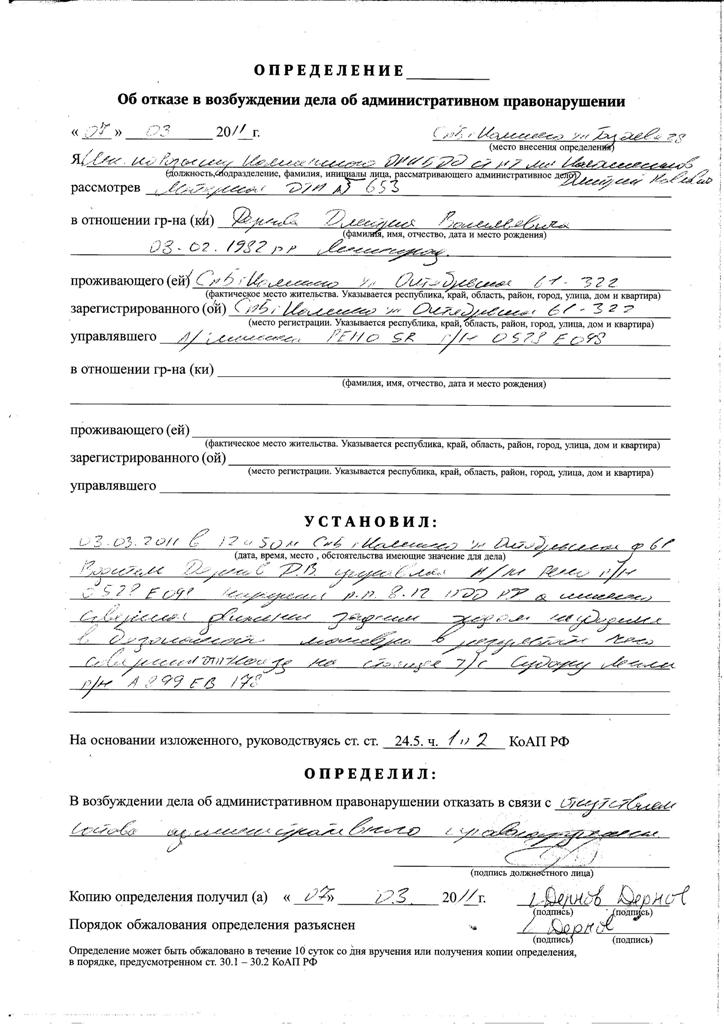 ОПРЕДЕЛЕНИЕ
Об отказе в возбуждении дела об административном правонарушении
« 07 » 03 2011 г. СПб, Колпино ул
(место внесения определения)
Я
(должность, подразделение, фамилия, инициалы лица, рассматривающего административное дело)
рассмотрев Материал ДТП 653
в отношении гр-на (ки) Дернова Дмитрия
(фамилия, имя, отчество, дата и место рождения)
03.02.1982 гр Ленинград.
проживающего (ей) СПб, Колпино ул Октябрьская 61-322
(фактическое место жительства. Указывается республика, край, область, район, город, улица, дом и квартира)
зарегистрированного (ой) СПб, Колпино ул Октябрьская 61-322
(место регистрации. Указывается республика, край, область, район, город, улица, дом и квартира)
управлявшего а/машиной РЕНО SR г/н
в отношении гр-на (ки)
(фамилия, имя, отчество, дата и место рождения)
проживающего (ей)
(фактическое место жительства. Указывается республика, край, область, район, город, улица, дом и квартира)
зарегистрированного (ой)
(место регистрации. Указывается республика, край, область, район, город, улица, дом и квартира)
управлявшего
УСТАНОВИЛ:
03.03.2011 в 12ч50м СПб, Колпино ул Октябрьская
(дата, время, место , обстоятельства имеющие значение для дела)
Водитель Дернов Д.В. управляя а/м Рено г/н
нарушил п.п. 8.12 ПДД РФ а именно
совершая движение задним ходом не убедился
в безопасности маневра в результате чего
совершил наезд на стоящее т/с Субару
г/н А899ЕВ 178
На основании изложенного, руководствуясь ст. ст. 24.5. ч. 1 п 2 КоАП РФ
ОПРЕДЕЛИЛ:
В возбуждении дела об административном правонарушении отказать в связи с отсутствием
состава административного правонарушения.
(подпись должностного лица)
Копию определения получил (а) « 07» 03 2011г. Дернов Дернов
(подпись) (подпись)
Порядок обжалования определения разъяснен Дернов
(подпись) (подпись)
Определение может быть обжаловано в течение 10 суток со дня вручения или получения копии определения,
в порядке, предусмотренном ст. 30.1 – 30.2 КоАП РФ